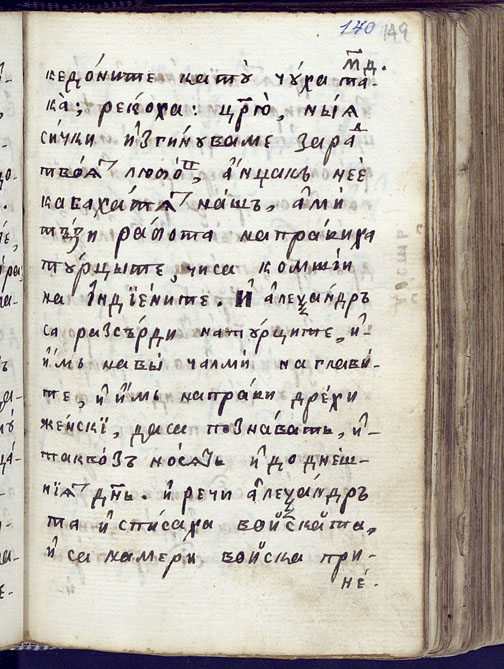 140 149
м҃д.
кедо́ните кату̀ чу́ха та-
ка̀; реко́ха: цр҃ю̀, ны́ꙗ
си́чки и҆зги́нуваме зара
твоѧ̀ любо́, а҆нцакъ не́е
кабаха́тѧ на́шъ, а҆мѝ
тъ́зи рабо́та напра́виха
ту́рцыте, чиса комші́и
на і҆ндїе́ните. И҆ а҆леѯа́ндръ
са разсъ́рди натурците, и҆-
и҆́мь навѝ чалмѝ наглаби́-
те, и҆ и҆́мь напра́ви дре́хи
же́нскї, даса позна́ватъ, и҆-
таквозъ но́сѧтъ и҆ до дне́ш-
нїѧ дн҃ь. и҆ речи а҆леѯа́ндръ
та и҆ спи́саха войска́та,
и҆ са намери войска при-
не́.